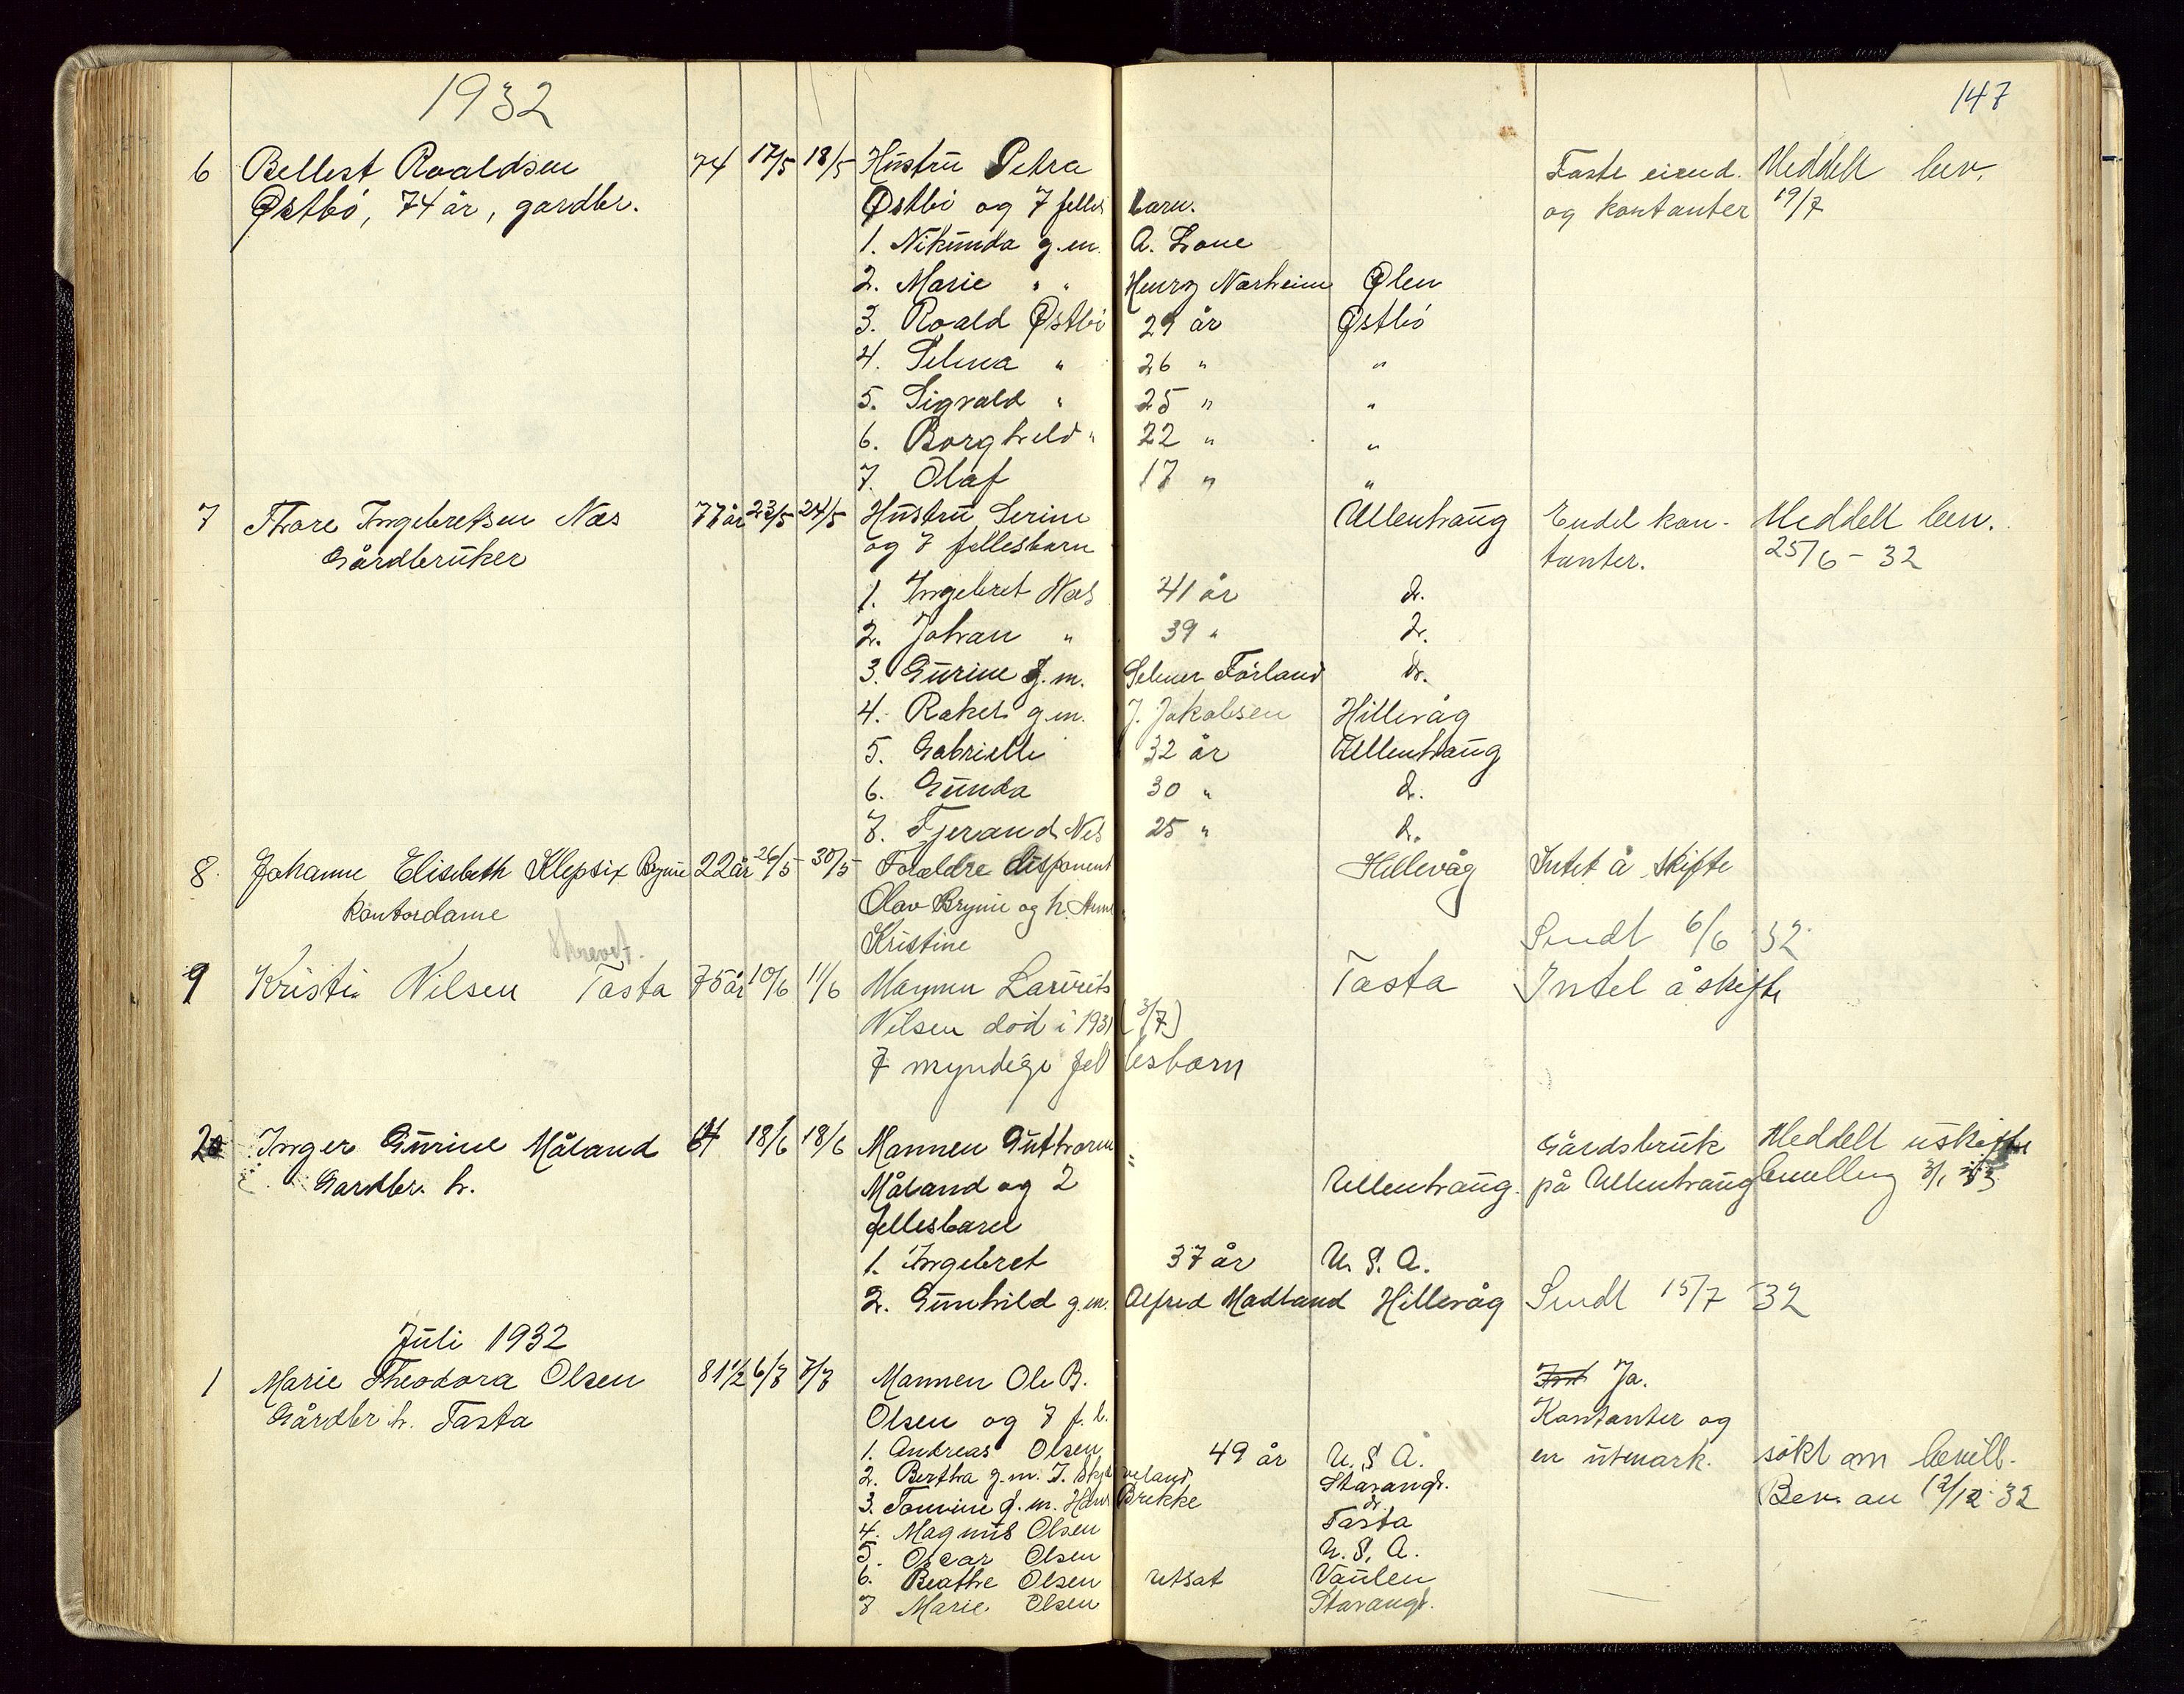 1932
147
6 Bellest Roaldsen 74 17/5 18/5 Hustru Petra Faste eiend. Meddelt bev.
Østbö, 74 år, gardbr. Østbö og 7 felles barn. og kontanter 19/7
1. Nikunda g.m. A. Lone
2. Marie " " Henry Nærheim Ølen
3. Roald Østbö 29 år Østbö
4. Selma " 26 " "
5. Sigvald " 25 " "
6. Borghild " 22 " "
7. Olaf 17 " "
7 Thore Ingebretsen Næs 77 år 23/5 24/5 Hustru Serine Ullenhaug Endel kon- Meddelt bev.
Gårdbruker og 7 fellesbarn tanter. 25/6 - 32
1. Ingebret Næs 41 år d.
2. Johan " 39 " d.
3. Gurine g.m. Selmer Förland d.
4. Rakel g.m. J. Jakobsen Hillevåg
5. Gabrielle 32 år Ullenhaug
6. Gunda 30 " d.
7. Tjerand Nes 25 " d.
8. Johanne Elisabeth Klepsix Bryne 22 år 26/5 30/5 Foreldre disponent Hillevåg Intet å skifte
kontordame Olav Bryne og h. Anne
Kristine Sendt 6/6 32
skrevet.
9 Kristi Nilsen Tasta 75 år 10/6 11/6 Mannen Laurits Tasta Intet å skifte
Nilsen död i 1931 (3/7)
7 myndige fellesbarn
20 Inger Gurine Måland 64 18/6 18/6 Mannen Guthorm Gårdsbruk Meddelt uskifte
Gardbr. h. Måland og 2 Ullenhaug. på Ullenhaug bevilling 3/1 33
fellesbarn
1. Ingebret 37 år U.S.A.
2. Gunhild g.m. Alfred Madland Hillevåg Sendt 15/7 32
Juli 1932
1 Marie Theodora Olsen 81 1/2 6/7 7/7 Mannen Ole B. Int Ja.
Gårdbr h. Tasta Olsen og 7 f.b. Kontanter og
1. Andreas Olsen 49 år U.S.A. en utmark. sökt om bevill.
2. Bertha g.m. T. Skjæveland Stavangr. Bev. au 12/12 32
3. Tomine g.m. Hans Brekke d.
4. Magnus Olsen Tasta
5. Oscar Olsen U.S.A.
6. Beathe Olsen utsat Vaulen
7 Marie Olsen Stavangr.